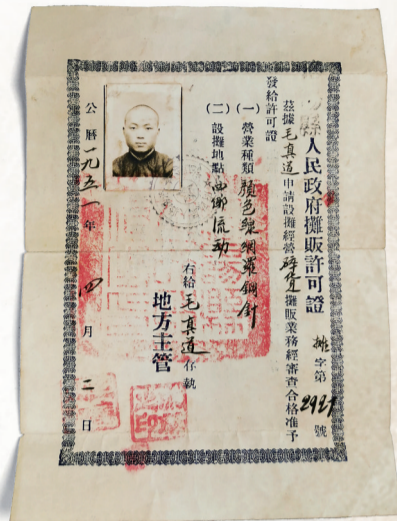 縣人民政府攤販許可證
攤字第2921號
茲據毛真道申請設攤經營碎貨攤販業務經審查合格准予
發給許可證
(一)營業種類 顏色線網籮鋼針
(二)設攤地點 西鄉流动
右給毛真道存執
地方主管
公曆一九五一年四月二日